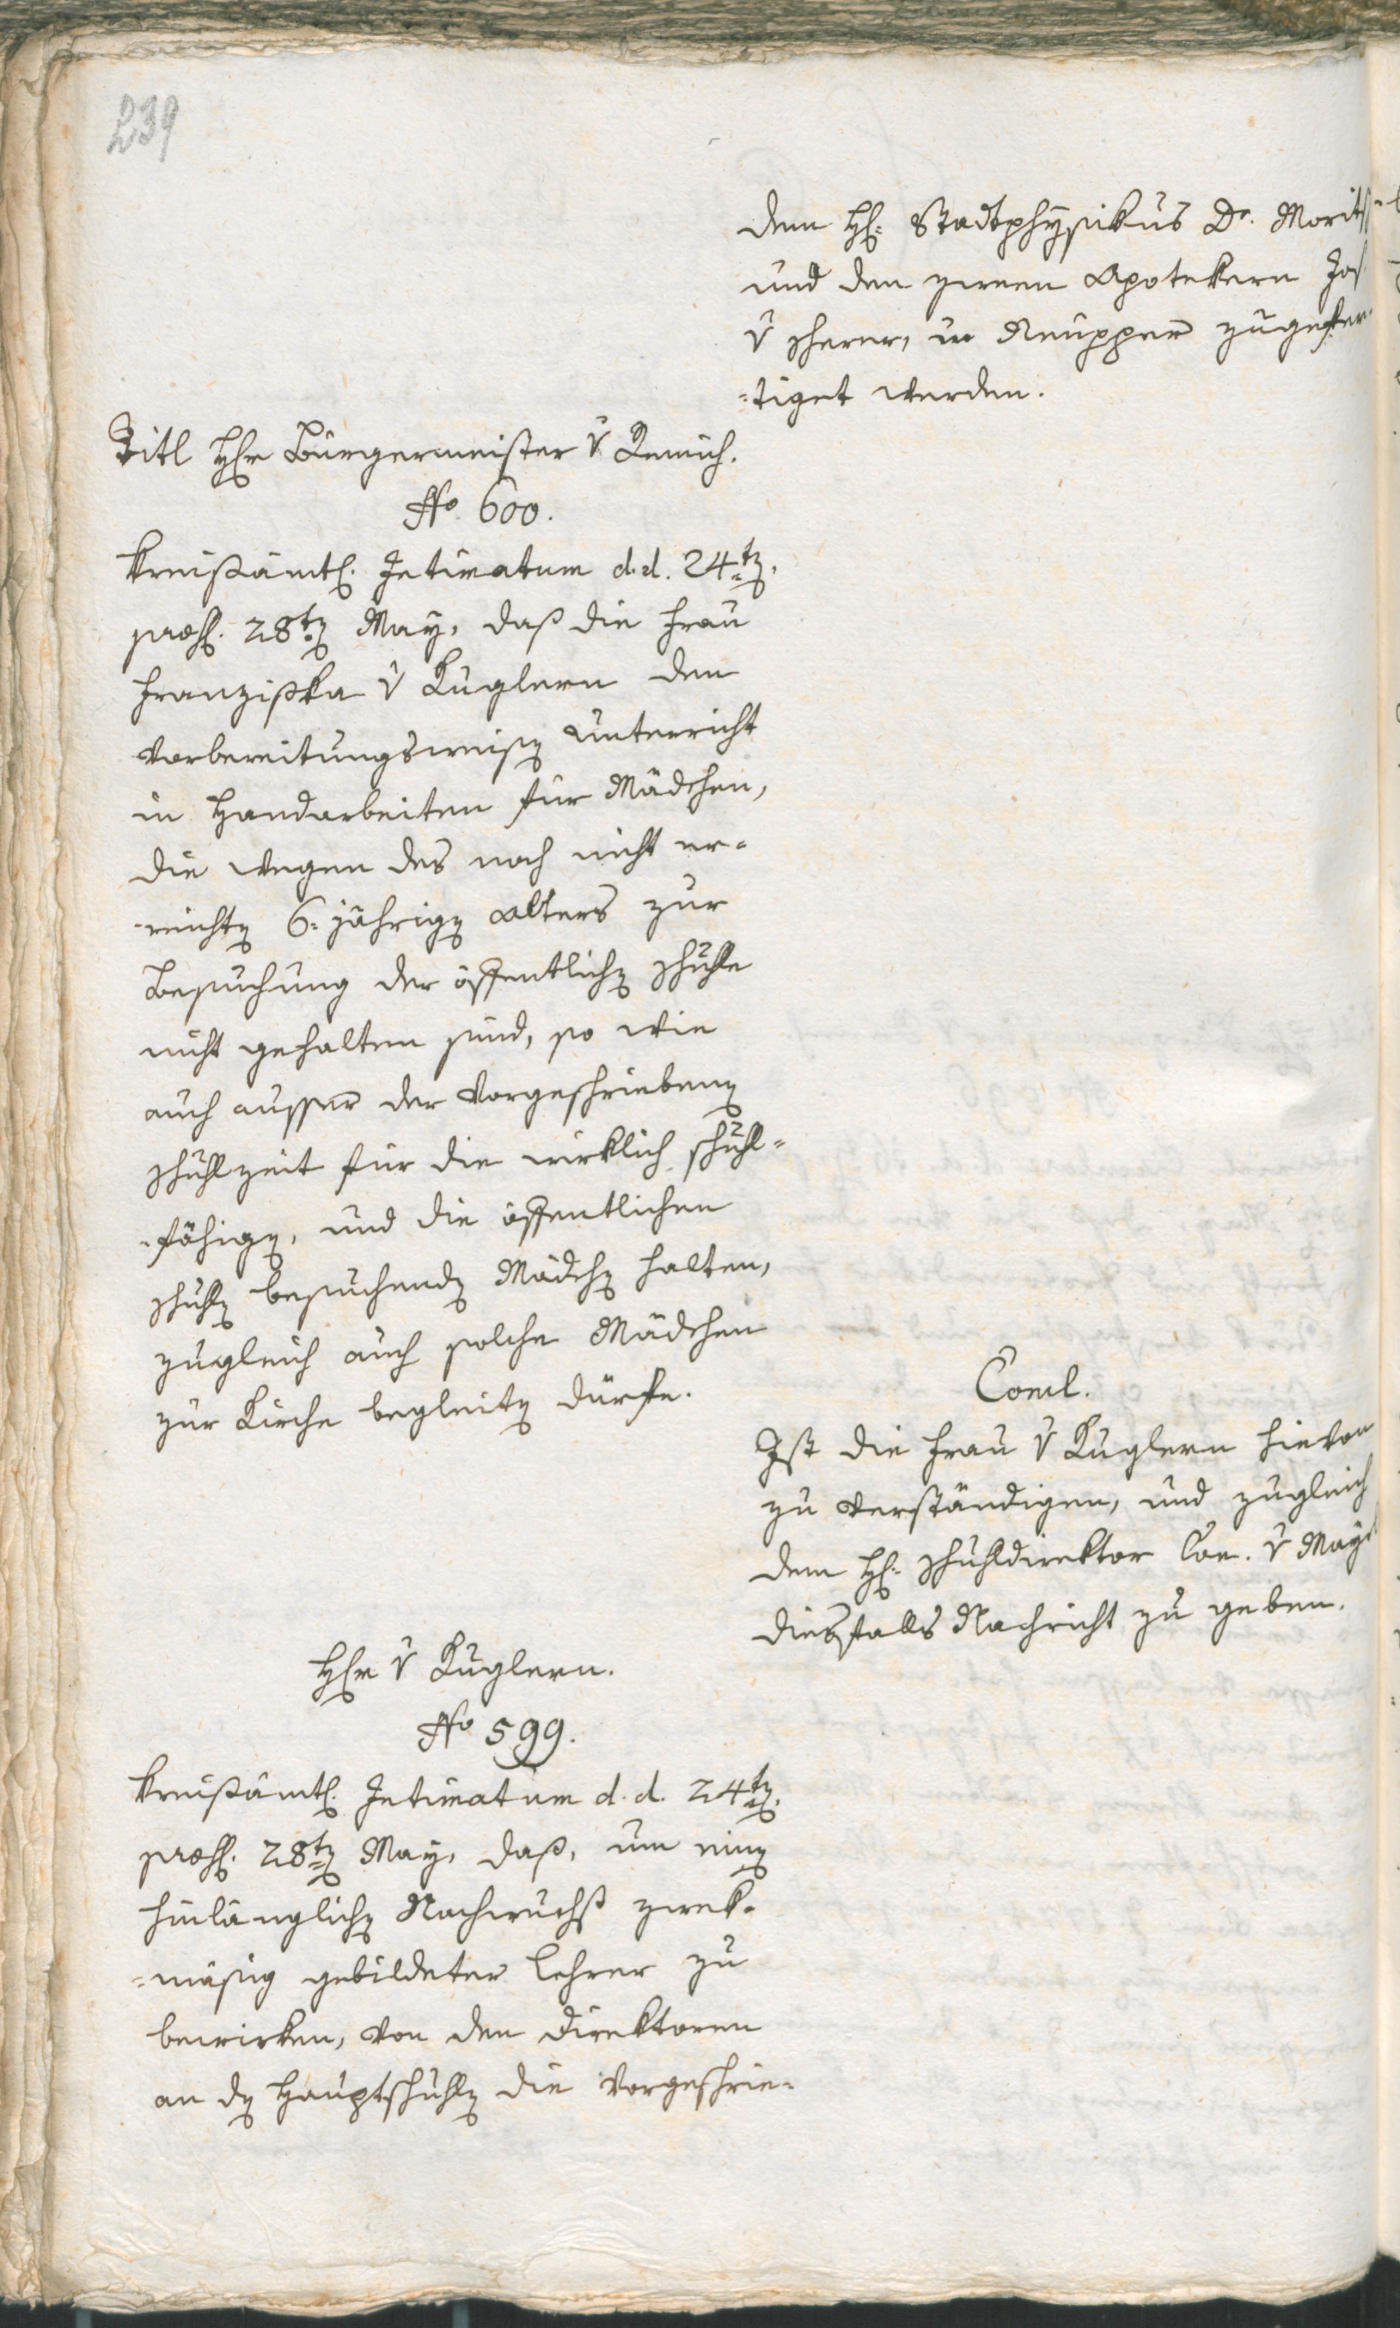 239
dem H: Stadtphÿsikus Dr. Moritz
und den zween Apotekern Jos
v Scherer, u Neupper zugefer-
=tiget werden.
Titl Hr Bürgermeister v Remich.
No. 600.
Kreißämtl. Intimatum d.d. 24t.
praes. 28t May, daß die Frau
Franzißka v Kuglern den
Vorbereitungsweisen Unterricht
in Handarbeiten für Mädchen,
die wegen des noch nicht er-
-reichten 6: jährigen Alters zur
Besuchung der öffentlichen Schulle
nicht gehalten sind, so wie
auch ausser der Vorgeschriebenen
Schullzeit für die wirklich schull=
-fähigen, und die öffentlichen
Schullen besuchenden Mädchen halten,
zugleich auch solche Mädchen
zur Kirche begleiten dürfe.
Concl.
Ist die Frau v Kuglern hievon
zu Verständigen, und zugleich
dem H: Schulldirektor Can. v Mayr
diesfalls Nachricht zu geben.
Hr v Kuglern.
No 599.
Kreißämtl. Intimatum d.d. 24t.
praes. 28t May, daß, um einen
hinlänglichen Nachwuchß zwek-
=mäsig gebildeter Lehrer zu
bewirken, Von den Direktoren
an den Hauptschullen die Vorgeschrie-